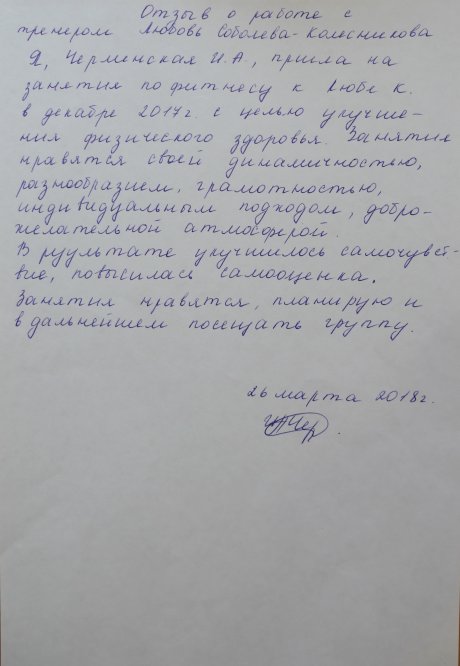 Отзыв о работе с
тренером Любовь Соболева-Колесникова
Я, Черменская И.А., пришла на
занятия по фитнесу к Любе К.
в декабре 2017г. с целью улучше-
ния физического здоровья. Занятия
нравятся своей динамичностью,
разнообразием, грамотностью,
индивидуальным подходом, добро-
желательной атмосферой.
В результате улучшилось самочувст-
вие, повысилась самооценка.
Занятия нравятся, планирую и
в дальнейшем посещать группу.
26 марта 2018г.